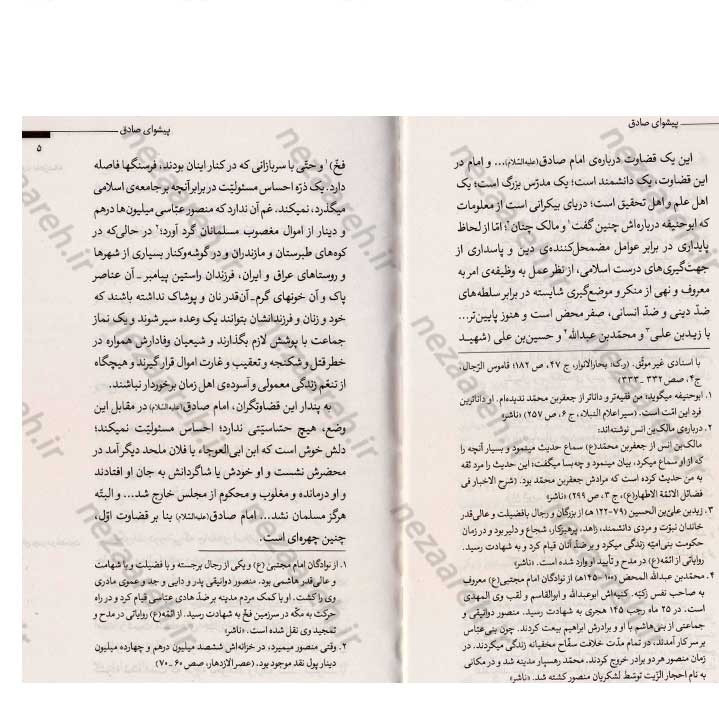 پیشوای صادق
این یک قضاوت درباره‌ی امام صادق(علیه‌السّلام)... و امام در
این قضاوت، یک دانشمند است؛ یک مدرّس بزرگ است؛ یک
اهل علم و اهل تحقیق است؛ دریای بیکرانی است از معلومات
که ابوحنیفه درباره‌اش چنین گفت۱ و مالک چنان۲؛ امّا از لحاظ
پایداری در برابر عوامل مضمحل‌کننده‌ی دین و پاسداری از
جهت‌گیری‌های درست اسلامی، از نظر عمل به وظیفه‌ی امر به
معروف و نهی از منکر و موضع‌گیری شایسته در برابر سلطه‌های
ضدّ دینی و ضدّ انسانی، صفر محض است و هنوز پایین‌تر...
با زیدبن علی۳ و محمّدبن عبدالله۴ و حسین‌بن علی (شهید
با اسنادی غیر موثّق. (ر.ک: بحارالانوار، ج ۴۷، ص ۱۸۲؛ قاموس الرّجال،
ج۴، صص ۳۳۲ ـ ۳۳۳)
۱. ابوحنیفه میگوید: من فقیه‌تر و داناتر از جعفربن محمّد ندیده‌ام. او داناترین
فرد این امّت است. (سیر اعلام النبلاء، ج ۶، ص ۲۵۷) «ناشر»
۲. درباره‌ی مالک‌بن انس نوشته‌اند:
مالک‌بن انس از جعفربن محمّد(ع) سماع حدیث مینمود و بسیار آنچه را
که از او سماع میکرد، بیان مینمود و چه‌بسا میگفت: این حدیث را مرد ثقه
به من حدیث کرده است که مرادش جعفربن محمّد بود. (شرح الاخبار فی
فضائل الائمّة الاطهار(ع)، ج ۳، ص ۲۹۹) «ناشر»
۳. زیدبن علی‌بن الحسین (۷۹-۱۲۲ هـ) از بزرگان و رجال بافضیلت و عالی‌قدر
خاندان نبوّت و مردی دانشمند، زاهد، پرهیزکار، شجاع و دلیر بود و در زمان
حکومت بنی‌امیّه زندگی میکرد و بر ضدّ آنان قیام کرد و به شهادت رسید.
روایاتی از ائمّه(ع) در مدح و تأیید او وارد شده است. «ناشر»
۴. محمّدبن عبدالله المحض (۱۰۰-۱۴۵هـ) از نوادگان امام مجتبی(ع) معروف
به صاحب نفس زکیّه، کنیه‌اش ابوعبدالله و ابوالقاسم و لقب وی المهدی
است. در ۲۵ ماه رجب ۱۴۵ هجری به شهادت رسید. منصور دوانیقی و
جماعتی از بنی‌هاشم با او و برادرش ابراهیم بیعت کردند. چون بنی‌عبّاس
بر سر کار آمدند، در تمام مدّت خلافت سفّاح مخفیانه زندگی میکردند. در
زمان منصور هر دو برادر خروج کردند. محمّد رهسپار مدینه شد و در مکانی
به نام احجار الزّیت توسّط لشکریان منصور کشته شد. «ناشر»
پیشوای صادق
۵
فخّ)۱ و حتّی با سربازانی که در کنار اینان بودند، فرسنگها فاصله
دارد. یک ذرّه احساس مسئولیّت در برابر آنچه بر جامعه‌ی اسلامی
میگذرد، نمیکند. غم آن ندارد که منصور عبّاسی میلیون‌ها درهم
و دینار از اموال مغصوب مسلمانان گرد آورد؛۲ در حالی‌که در
کوه‌های طبرستان و مازندران و در گوشه‌وکنار بسیاری از شهرها
و روستاهای عراق و ایران، فرزندان راستین پیامبر ـ آن عناصر
پاک و آن خونهای گرم ـ آن‌قدر نان و پوشاک نداشته باشند که
خود و زنان و فرزندانشان بتوانند یک وعده سیر شوند و یک نماز
جماعت با پوشش لازم بگذارند و شیعیان وفادارش همواره در
خطر قتل و شکنجه و تعقیب و غارت اموال قرار گیرند و هیچگاه
از تنعّم زندگی معمولی و آسوده‌ی اهل زمان برخوردار نباشند.
به پندار این قضاوتگران، امام صادق(علیه‌السّلام) در مقابل این
وضع، هیچ حسّاسیّتی ندارد؛ احساس مسئولیّت نمیکند؛
دلش خوش است که ابن ابی‌العوجاء یا فلان ملحد دیگر آمد در
محضرش نشست و او خودش یا شاگردانش به جان او افتادند
و او درمانده و مغلوب و محکوم از مجلس خارج شد... و البتّه
هرگز مسلمان نشد... امام صادق(علیه‌السّلام) بنا بر قضاوت اوّل،
چنین چهره‌ای است.
۱. از نوادگان امام مجتبیٰ (ع) و یکی از رجال برجسته و با فضیلت و با شهامت
و عالی‌قدر هاشمی بود. منصور دوانیقی پدر و دایی و جد و عموی مادری
وی را کشت. او با کمک مردم مدینه بر ضدّ هادی عبّاسی قیام کرد و در راه
حرکت به مکّه در سرزمین فخّ به شهادت رسید. از ائمّه(ع) روایاتی در مدح و
تمجید وی نقل شده است. «ناشر»
۲. وقتی منصور میمیرد، در خزانه‌اش ششصد میلیون درهم و چهارده میلیون
دینار پول نقد موجود بود. (عصر الازدهار، صص ۶۰ ـ ۷۰)
nezaareh.ir